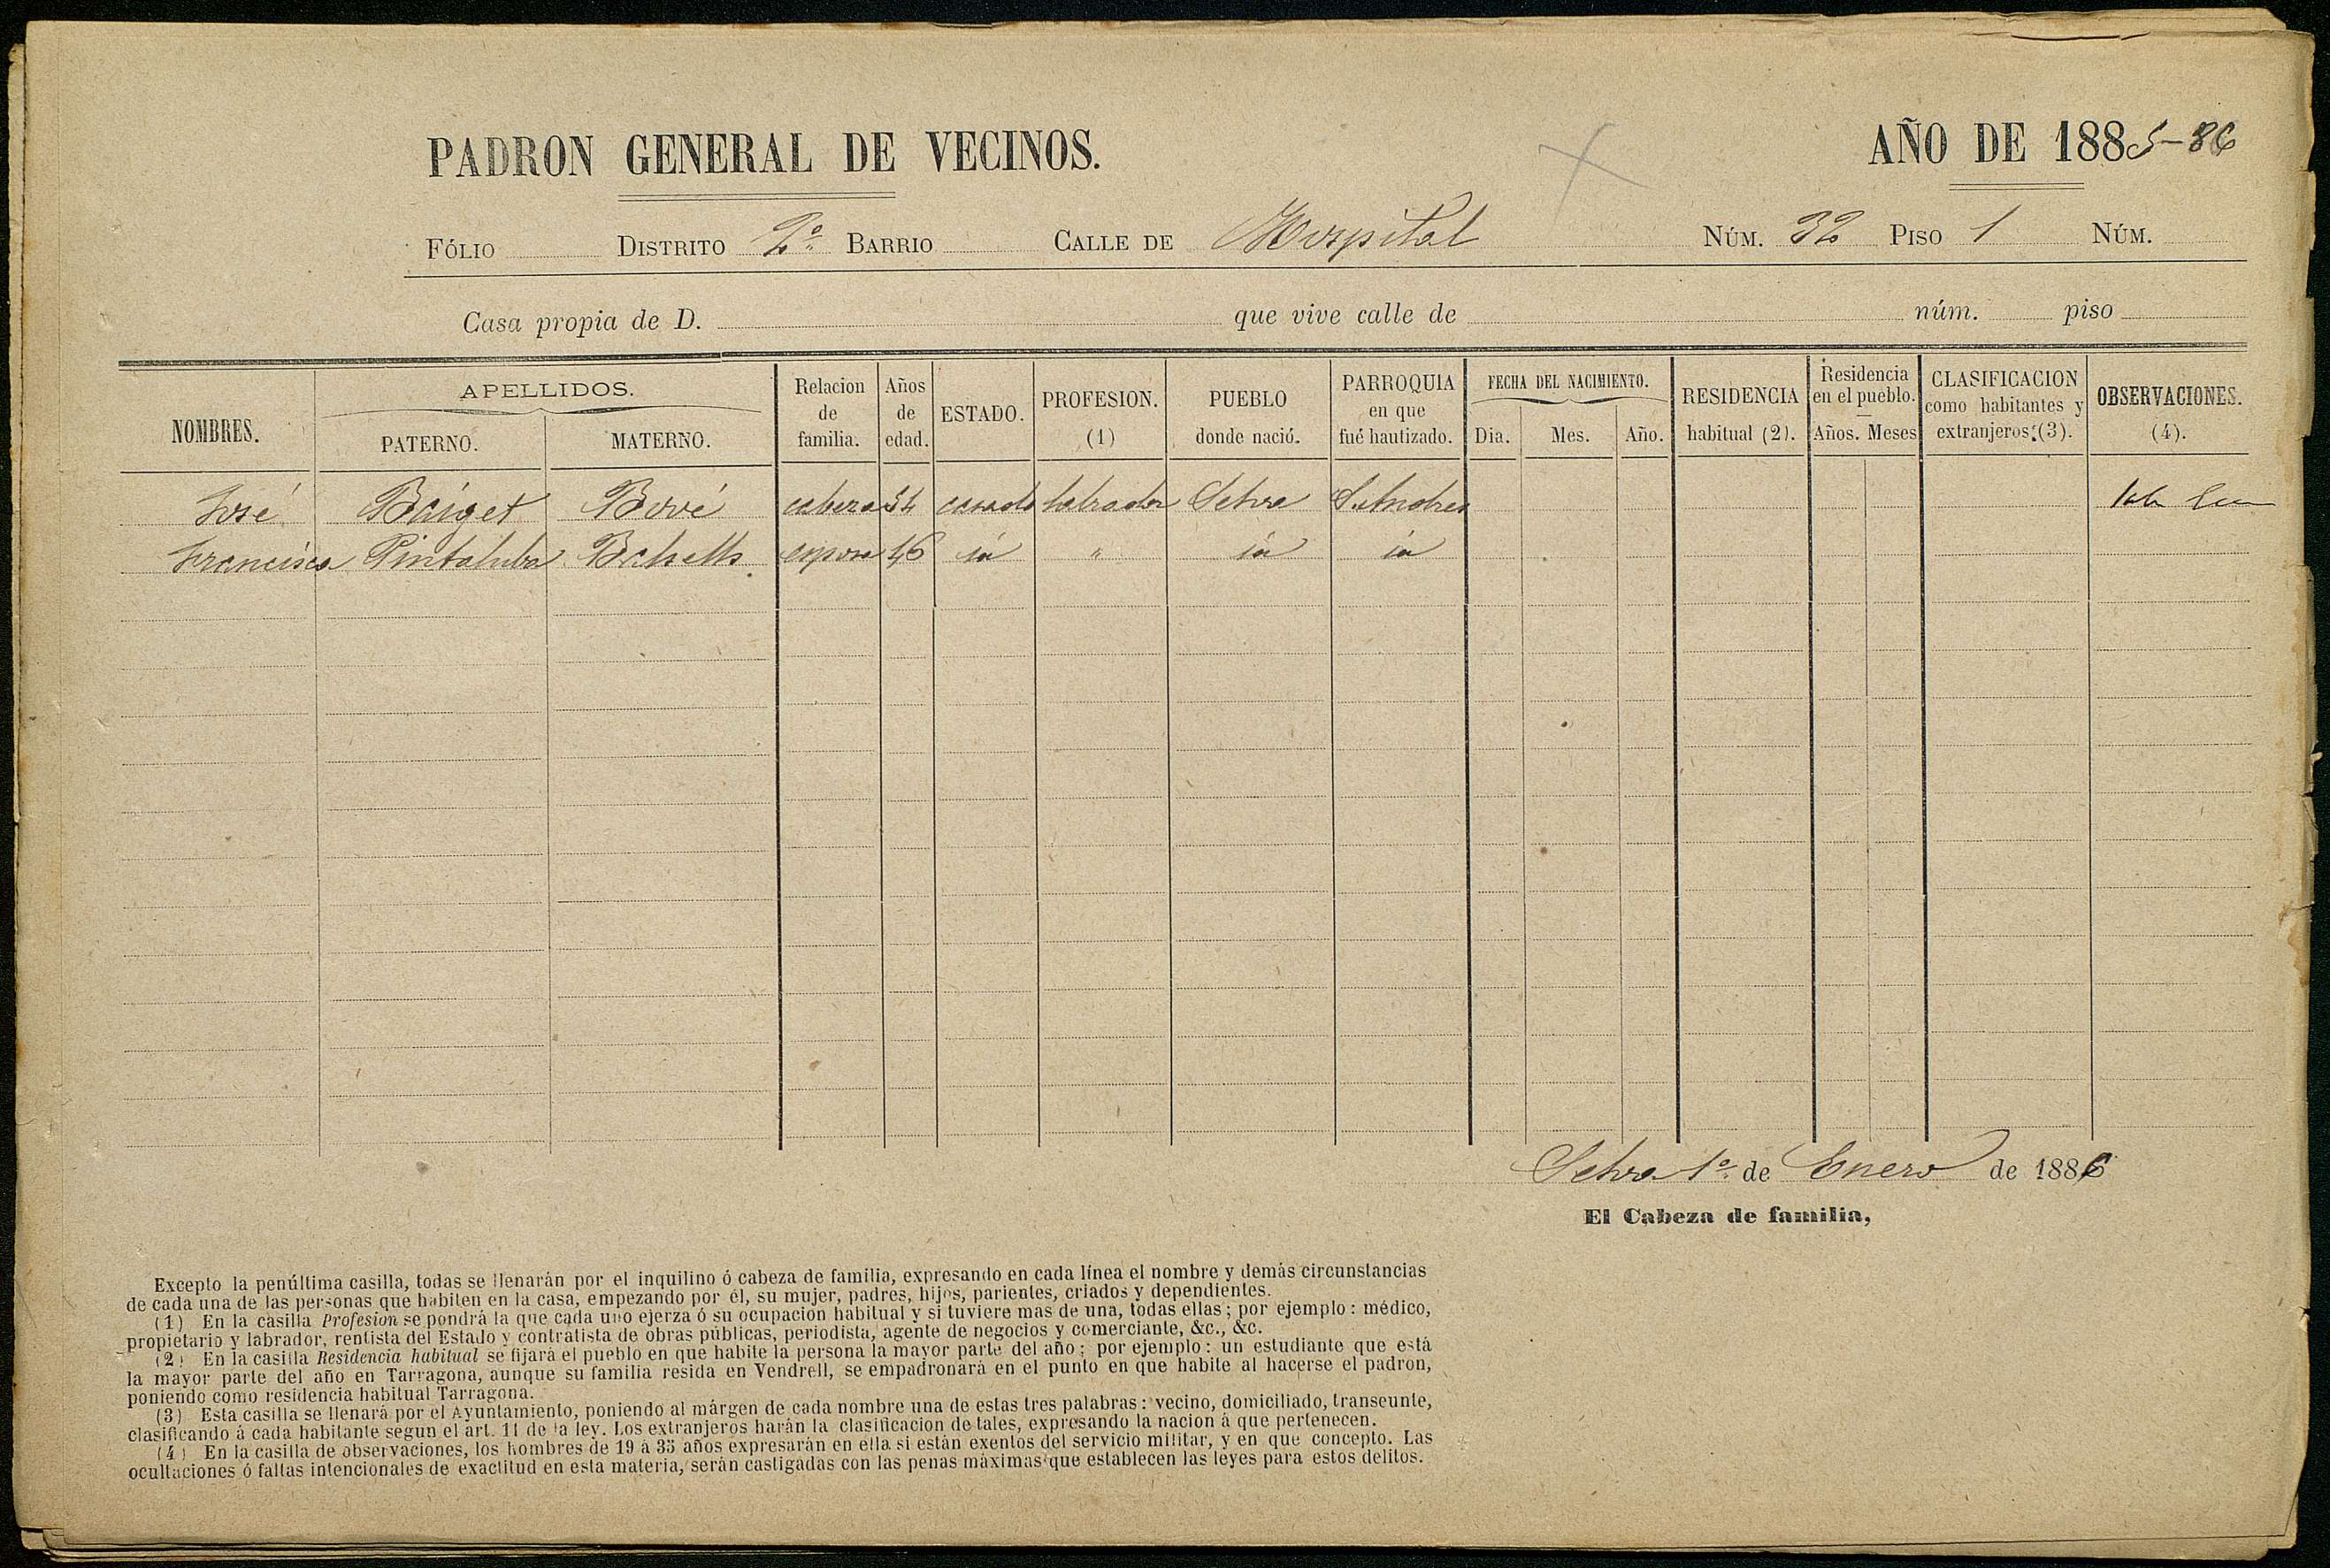 PADRON GENERAL DE VECINOS.
AÑO DE 1885-86
FÓLIO DISTRITO 2º BARRIO CALLE DE Hospital NÚM. 32 PISO 1 NÚM.
Casa propia de D. que vive calle de núm. piso
NOMBRES. APELLIDOS. PATERNO. MATERNO. Relacion de familia. Años de edad. ESTADO. PROFESION. (1) PUEBLO donde nació. PARROQUIA en que fué bautizado. FECHA DEL NACIMIENTO. Dia. Mes. Año. RESIDENCIA habitual (2). Residencia en el pueblo. Años. Meses CLASIFICACION como habitantes y extranjeros (3). OBSERVACIONES. (4).
José Baiget Bové cabeza 54 casado labrador Selva S. Andres
Francisca Pintaluba esposa 46 id " id id
Selva 1º de Enero de 1886
El Cabeza de familia,
Excepto la penúltima casilla, todas se llenarán por el inquilino ó cabeza de familia, expresando en cada línea el nombre y demás circunstancias
de cada una de las personas que habiten en la casa, empezando por él, su mujer, padres, hijos, parientes, criados y dependientes.
(1) En la casilla Profesion se pondrá la que cada uno ejerza ó su ocupacion habitual y si tuviere mas de una, todas ellas; por ejemplo: médico,
propietario y labrador, rentista del Estado y contratista de obras públicas, periodista, agente de negocios y comerciante, &c., &c.
(2) En la casilla Residencia habitual se fijará el pueblo en que habite la persona la mayor parte del año; por ejemplo: un estudiante que está
la mayor parte del año en Tarragona, aunque su familia resida en Vendrell, se empadronará en el punto en que habite al hacerse el padron,
poniendo como residencia habitual Tarragona.
(3) Esta casilla se llenará por el Ayuntamiento, poniendo al márgen de cada nombre una de estas tres palabras: vecino, domiciliado, transeunte,
clasificando á cada habitante segun el art. 11 de la ley. Los extranjeros harán la clasificacion de tales, expresando la nacion á que pertenecen.
(4) En la casilla de observaciones, los hombres de 19 á 35 años expresarán en ella si están exentos del servicio militar, y en que concepto. Las
ocultaciones ó faltas intencionales de exactitud en esta materia, serán castigadas con las penas máximas que establecen las leyes para estos delitos.